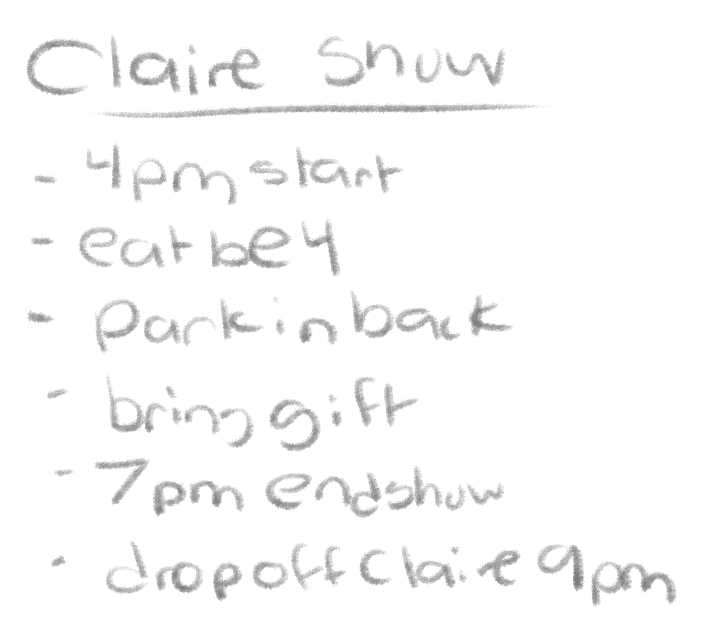 Claire Show
- 4pm start
- eat be4
- park in back
- bring gift
- 7pm end show
- drop off Claire 9pm